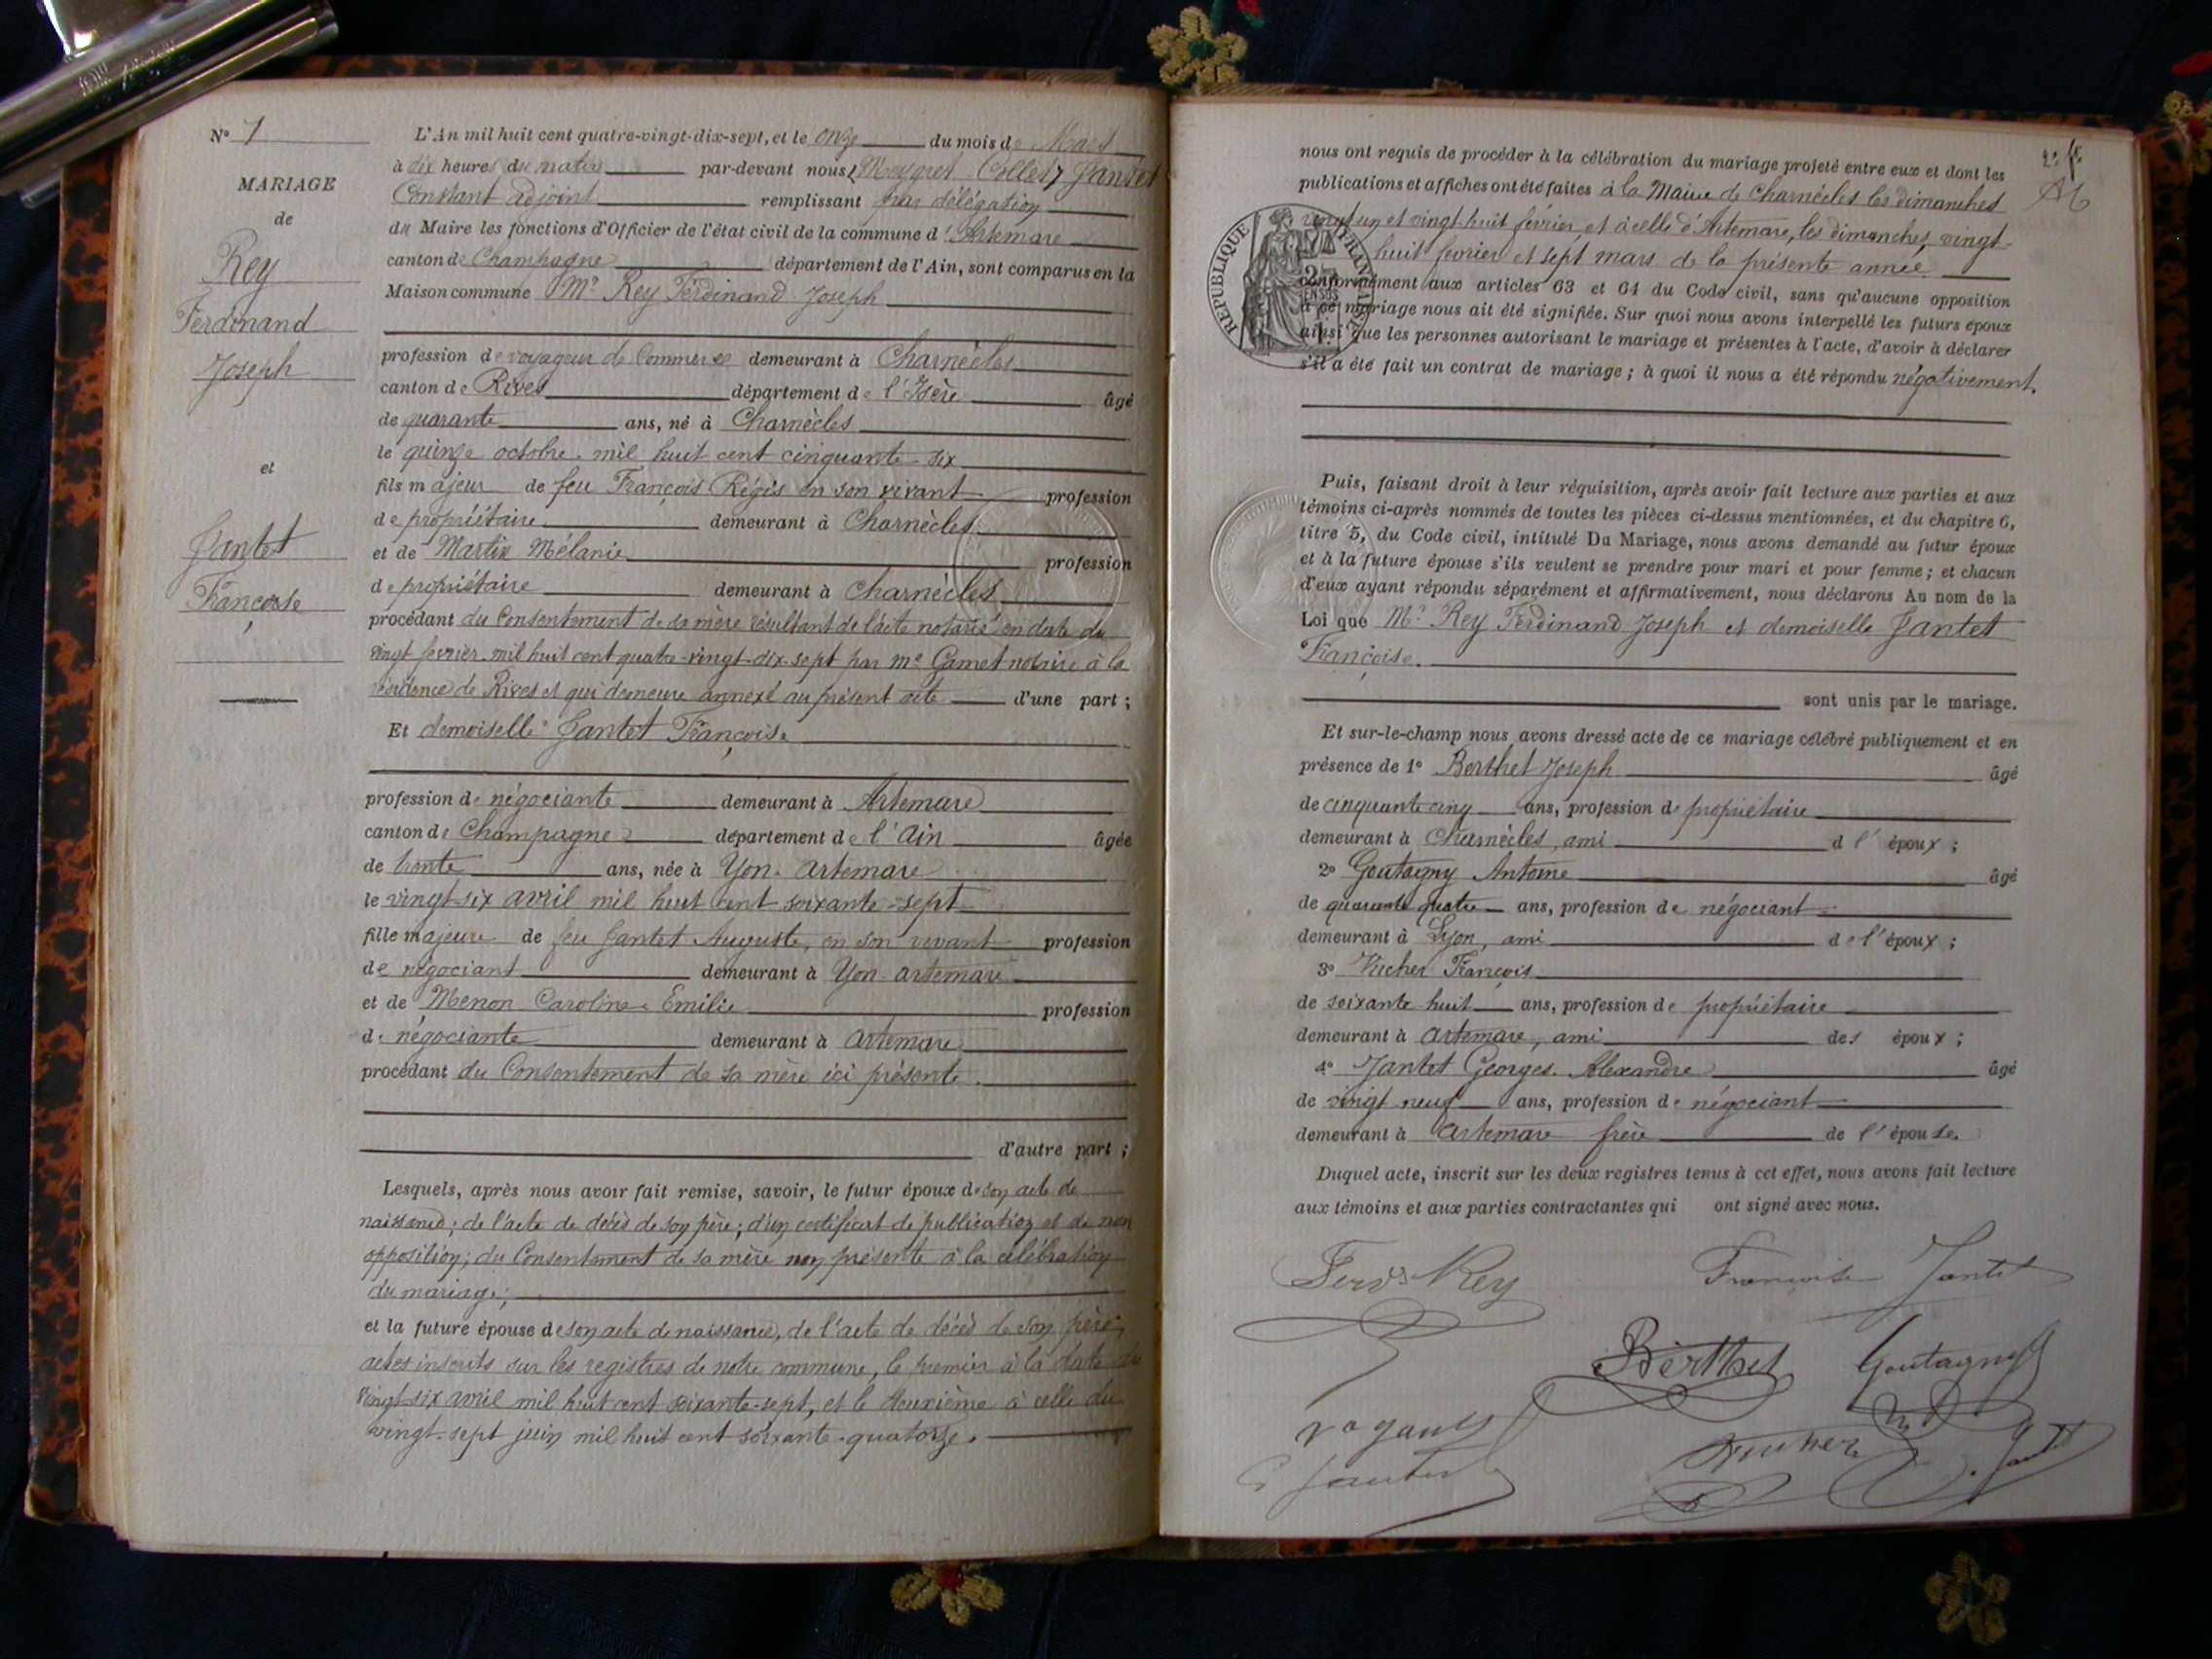 N° 7
MARIAGE
de
Rey
Ferdinand
Joseph
et
Jantet
Françoise
L'An mil huit cent quatre-vingt-dix-sept, et le onze du mois de Mars
à dix heures du matin par-devant nous, Jantet
Constant adjoint remplissant par délégation
du Maire les fonctions d'Officier de l'état civil de la commune d'Artemare
canton de Champagne département de l'Ain, sont comparus en la
Maison commune Mr Rey Ferdinand Joseph
profession de voyageur de Commerce demeurant à Charnècles
canton de Rives département de l'Isère âgé
de quarante ans, né à Charnècles
le quinze octobre mil huit cent cinquante-six
fils majeur de feu François Régis en son vivant profession
de propriétaire demeurant à Charnècles
et de Martin Mélanie profession
de propriétaire demeurant à Charnècles
procédant du Consentement de sa mère résultant de l'acte notarié en date du
vingt février mil huit cent quatre-vingt-dix-sept par Me Gamet notaire à la
résidence de Rives et qui demeure annexé au présent acte d'une part ;
Et demoiselle Jantet Françoise
profession de négociante demeurant à Artemare
canton de Champagne département de l'Ain âgée
de trente ans, née à Yon-Artemare
le vingt-six avril mil huit cent soixante-sept
fille majeure de feu Jantet Auguste, en son vivant profession
de négociant demeurant à Yon-artemare
et de Menon Caroline Emilie profession
de négociante demeurant à Artemare
procédant du Consentement de sa mère ici présente.
d'autre part ;
Lesquels, après nous avoir fait remise, savoir, le futur époux de son acte de
naissance ; de l'acte de décès de son père ; d'un certificat de publication et de non
opposition ; du Consentement de sa mère non présente à la célébration
du mariage ;
et la future épouse de son acte de naissance, de l'acte de décès de son père,
actes inscrits sur les registres de notre commune, le premier à la date du
vingt-six avril mil huit cent soixante-sept, et le deuxième à celle du
vingt-sept juin mil huit cent soixante-quatorze.
nous ont requis de procéder à la célébration du mariage projeté entre eux et dont les
publications et affiches ont été faites à la Mairie de Charnècles les dimanches
vingt un et vingt huit février, et à celle d'Artemare, les dimanches, vingt-
huit février et sept mars de la présente année
conformément aux articles 63 et 64 du Code civil, sans qu'aucune opposition
à ce mariage nous ait été signifiée. Sur quoi nous avons interpellé les futurs époux
ainsi que les personnes autorisant le mariage et présentes à l'acte, d'avoir à déclarer
s'il a été fait un contrat de mariage ; à quoi il nous a été répondu négativement.
RÉPUBLIQUE FRANÇAISE
Puis, faisant droit à leur réquisition, après avoir fait lecture aux parties et aux
témoins ci-après nommés de toutes les pièces ci-dessus mentionnées, et du chapitre 6,
titre 5, du Code civil, intitulé Du Mariage, nous avons demandé au futur époux
et à la future épouse s'ils veulent se prendre pour mari et pour femme ; et chacun
d'eux ayant répondu séparément et affirmativement, nous déclarons Au nom de la
Loi que Mr Rey Ferdinand Joseph et demoiselle Jantet
Françoise.
sont unis par le mariage.
Et sur-le-champ nous avons dressé acte de ce mariage célébré publiquement et en
présence de 1° Berthet Joseph âgé
de cinquante cinq ans, profession de propriétaire
demeurant à Charnècles, ami d l' époux ;
2° Goutagny Antoine âgé
de quarante quatre ans, profession de négociant
demeurant à Lyon, ami de l'époux ;
3° Vucher François
de soixante huit ans, profession de propriétaire
demeurant à artemare, ami des époux ;
4° Jantet Georges Alexandre âgé
de vingt neuf ans, profession de négociant
demeurant à Artemare frère de l'épouse.
Duquel acte, inscrit sur les deux registres tenus à cet effet, nous avons fait lecture
aux témoins et aux parties contractantes qui ont signé avec nous.
Ferd Rey
Françoise Jantet
Berthet
Goutagny
Vucher
Jantet